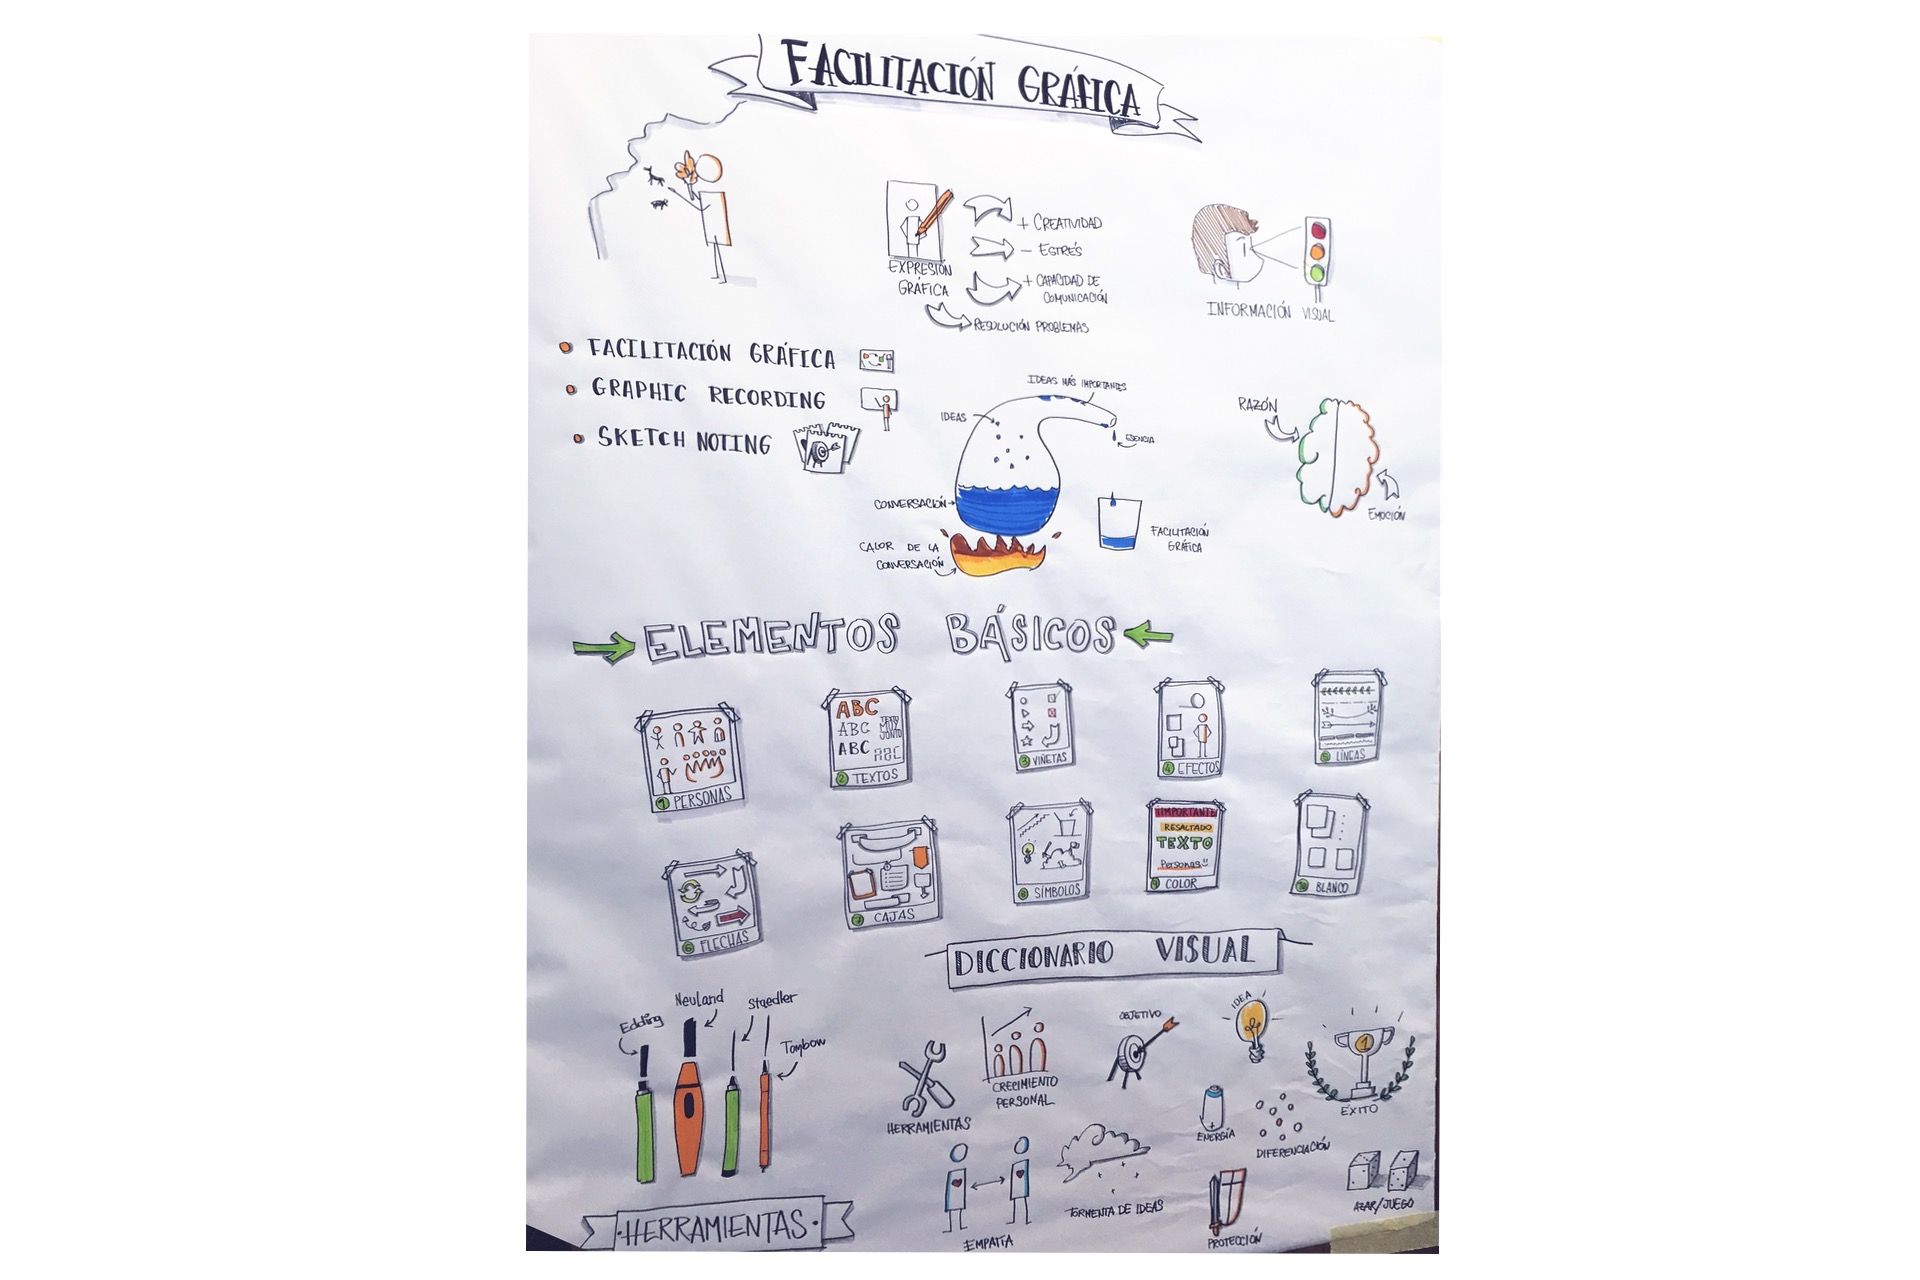 FACILITACIÓN GRÁFICA
EXPRESIÓN
GRÁFICA
+ CREATIVIDAD
- ESTRÉS
+ CAPACIDAD DE
COMUNICACIÓN
RESOLUCIÓN PROBLEMAS
INFORMACIÓN VISUAL
• FACILITACIÓN GRÁFICA
• GRAPHIC RECORDING
• SKETCH NOTING
IDEAS MÁS IMPORTANTES
IDEAS
ESENCIA
CONVERSACIÓN
CALOR DE LA
CONVERSACIÓN
FACILITACIÓN
GRÁFICA
RAZÓN
EMOCIÓN
ELEMENTOS BÁSICOS
1 PERSONAS
ABC
ABC
ABC
ABC
TEXTO
MUY
JUNTO
2 TEXTOS
3 VIÑETAS
4 EFECTOS
5 LÍNEAS
6 FLECHAS
7 CAJAS
8 SÍMBOLOS
IMPORTANTE
RESALTADO
TEXTO
Personas
9 COLOR
10 BLANCO
DICCIONARIO VISUAL
Edding
Neuland
Staedler
Tombow
HERRAMIENTAS
HERRAMIENTAS
CRECIMIENTO
PERSONAL
OBJETIVO
IDEA
1
ÉXITO
ENERGÍA
DIFERENCIACIÓN
EMPATÍA
TORMENTA DE IDEAS
PROTECCIÓN
AZAR/JUEGO